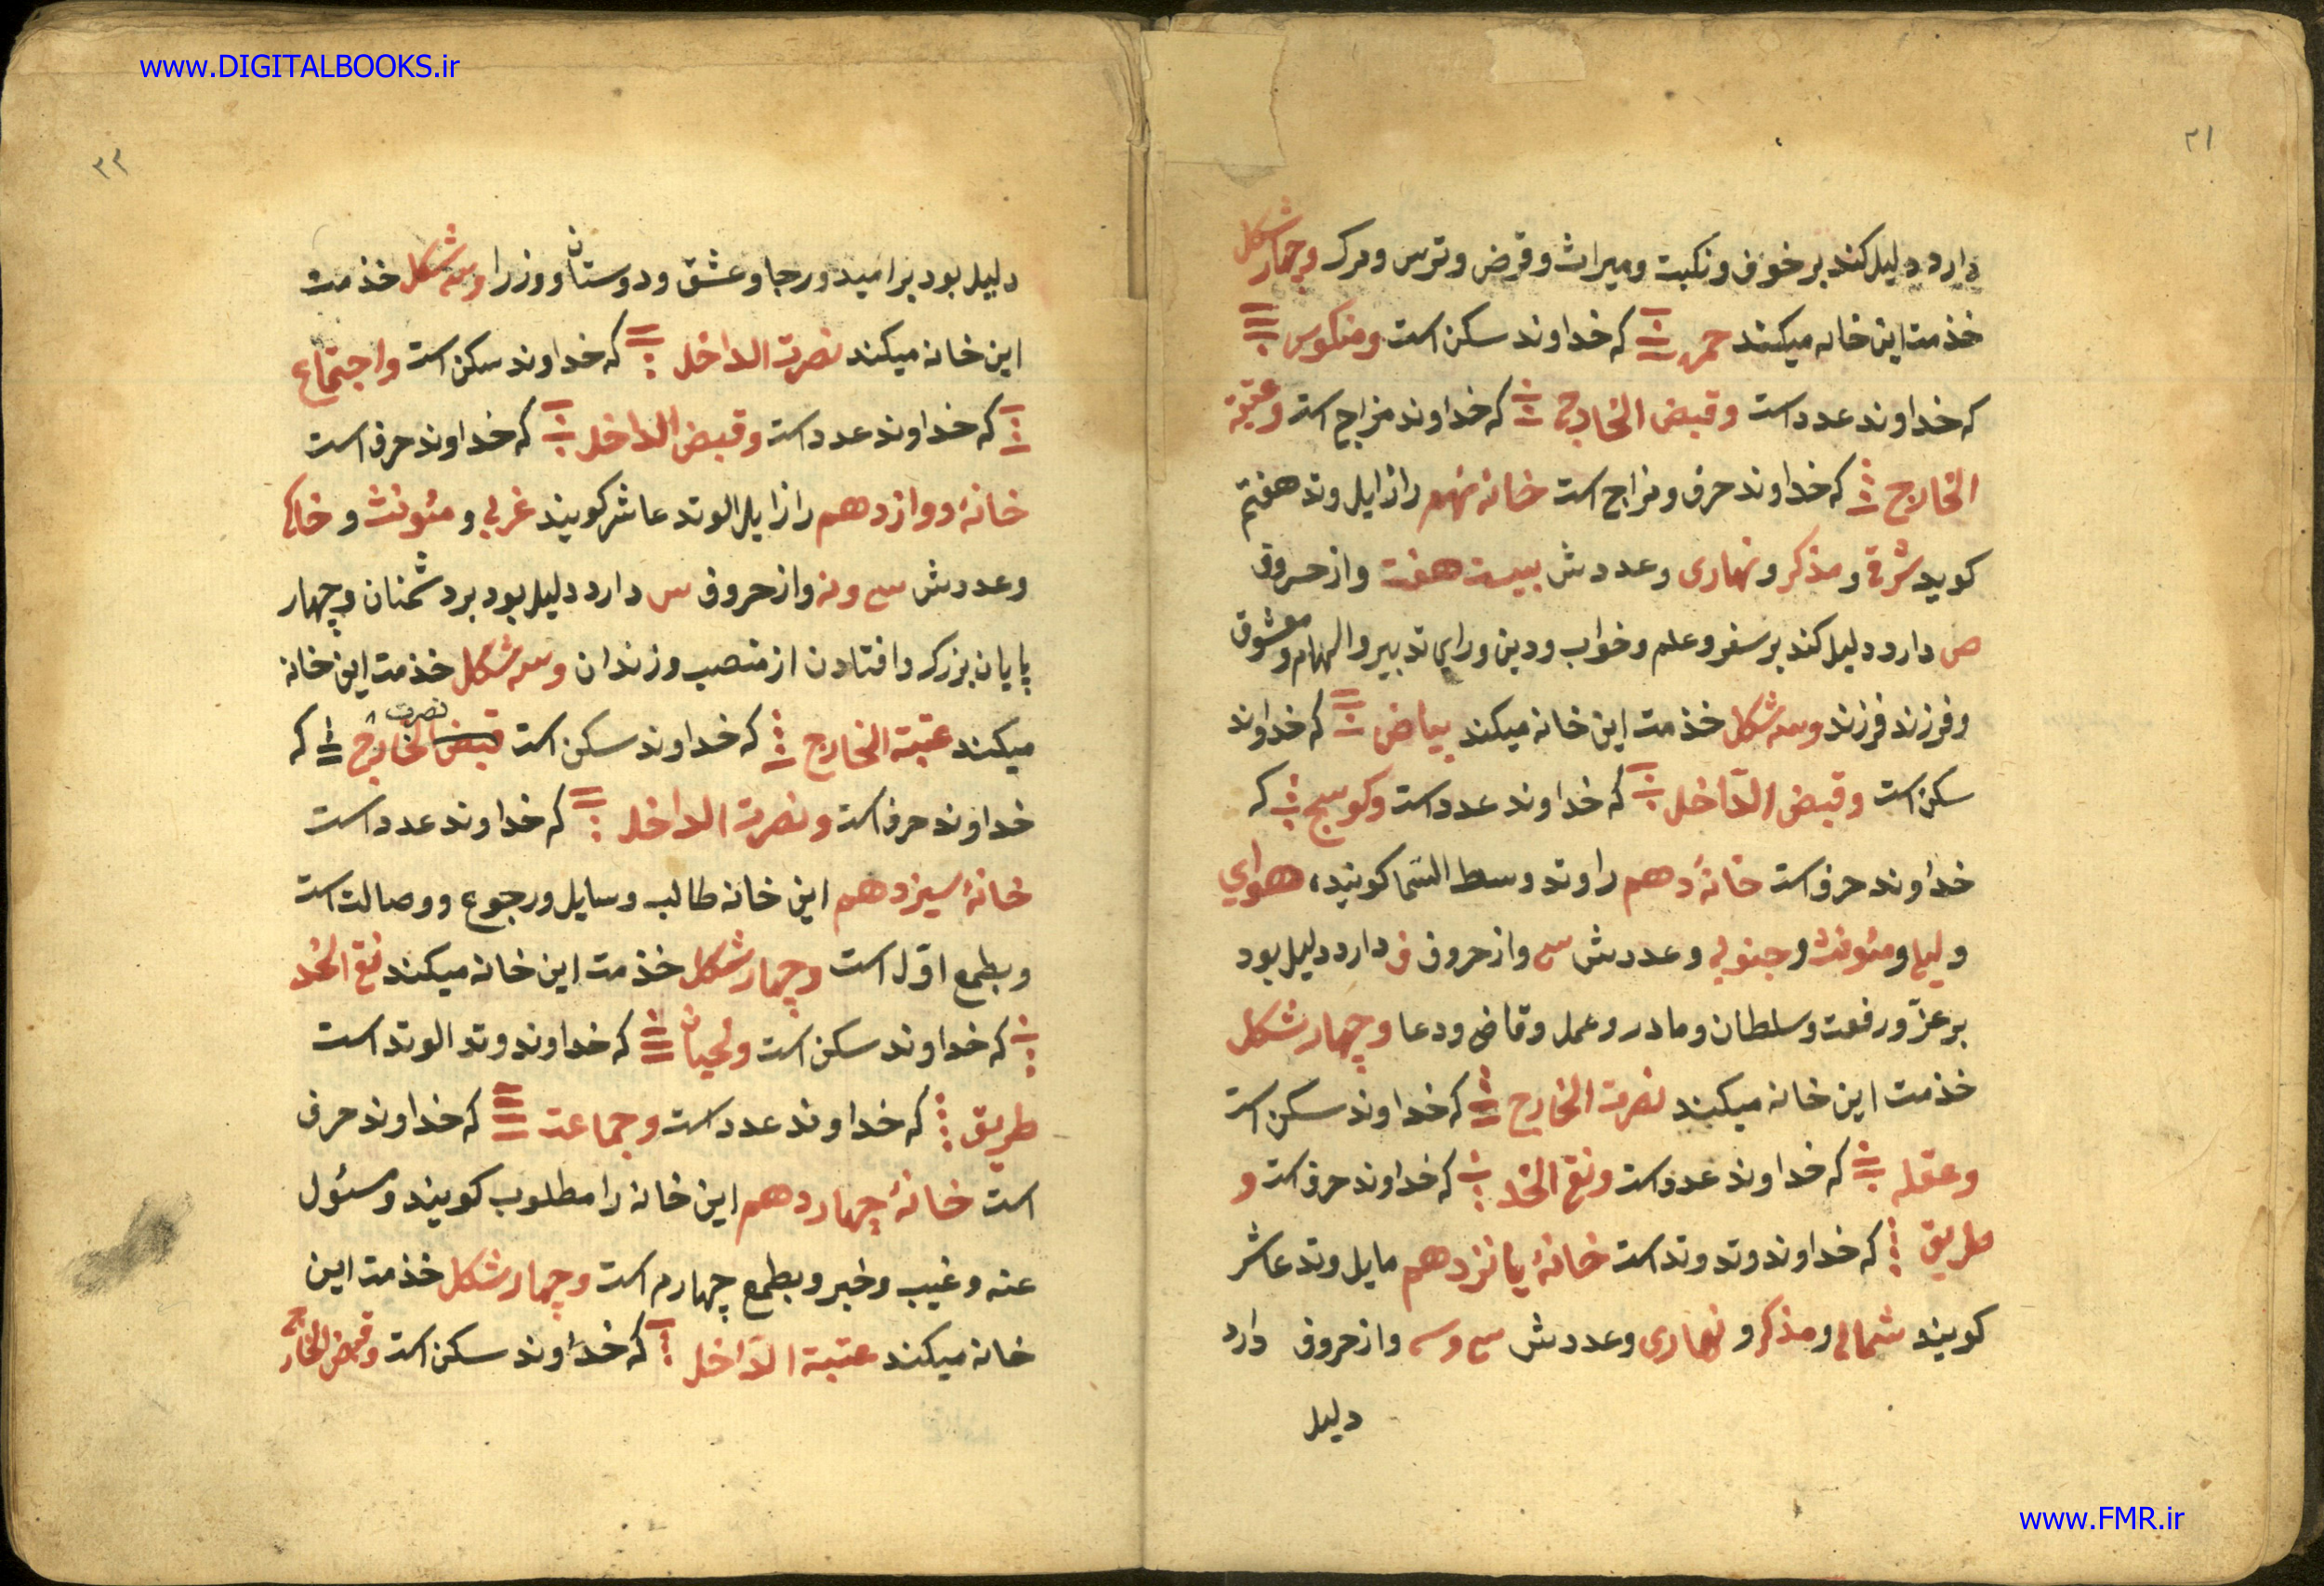 www.DIGITALBOOKS.ir
۲۱
دارد دلیل کند بر خوف و نکبت و میراث و قرض و ترس و مرک وچهار شکل
خذمت این خانه میکنند حمره که خداوند سکن است ومنکوس
که خداوند عدد است وقبض الخارج که خداوند مزاج است وعتبة
الخارج که خداوند حرف و مزاج است خانه نهم را زایل وتد هفتم
کوید شرقی و مذکر و نهاری و عددش بیست هفت و از حروف
ص دارد دلیل کند بر سفر و علم و خواب و دین و رای تدبیر و الهام و معشوق
و فرزند فرزند وسه شکل خذمت این خانه میکند بیاض که خداوند
سکن است وقبض الداخل که خداوند عدد است وکوسج که
خداوند حرف است خانهٔ دهم را وتد وسط السما کویند، هوای
و لیلی و مئونث و جنوبی و عددش سی و از حروف ف دارد دلیل بود
بر عز و رفعت و سلطان و مادر و عمل و قاضی و دعا وچهار شکل
خذمت این خانه میکنند نصرت الخارج که خداوند سکن است
وعقله که خداوند عدد است ونقی الخد که خداوند حرف است و
طریق که خداوند وتد وتد است خانهٔ یانزدهم مایل وتد عاشر
کویند شمالی و مذکر و نهاری و عددش سی و سه و از حروف دارد
دلیل
۲۲
دلیل بود بر امید و رجا و عشق و دوستان و وزرا وسه شکل خذمت
این خانه میکند نصرت الداخل که خداوند سکن است واجتماع
که خداوند عدد است وقبض الداخل که خداوند حرف است
خانهٔ دوازدهم را زایل الوتد عاشر کویند غربی و مئونث و خاکی
و عددش سی و نه و از حروف س دارد دلیل بود بر دشمنان و چهار
پایان بزرک و افتادن از منصب و زندان وسه شکل خذمت این خانه
میکند عتبة الخارج که خداوند سکن است قبض نصرت الخارج که
خداوند حرف است ونصرت الداخل که خداوند عدد است
خانهٔ سیزدهم این خانه طالب و سایل و رجوع و وصالت است
و بطمع اول است وچهار شکل خذمت این خانه میکند نقی الخد
که خداوند سکن است ولحیان که خداوند وتد الوتد است
طریق که خداوند عدد است وجماعت که خداوند حرف
است خانهٔ چهاردهم این خانه را مطلوب کویند و مسئول
عنه و غیب و خبر و بطمع چهارم است وچهار شکل خذمت این
خانه میکند عتبة الداخل که خداوند سکن است وقبض الخارج
www.FMR.ir